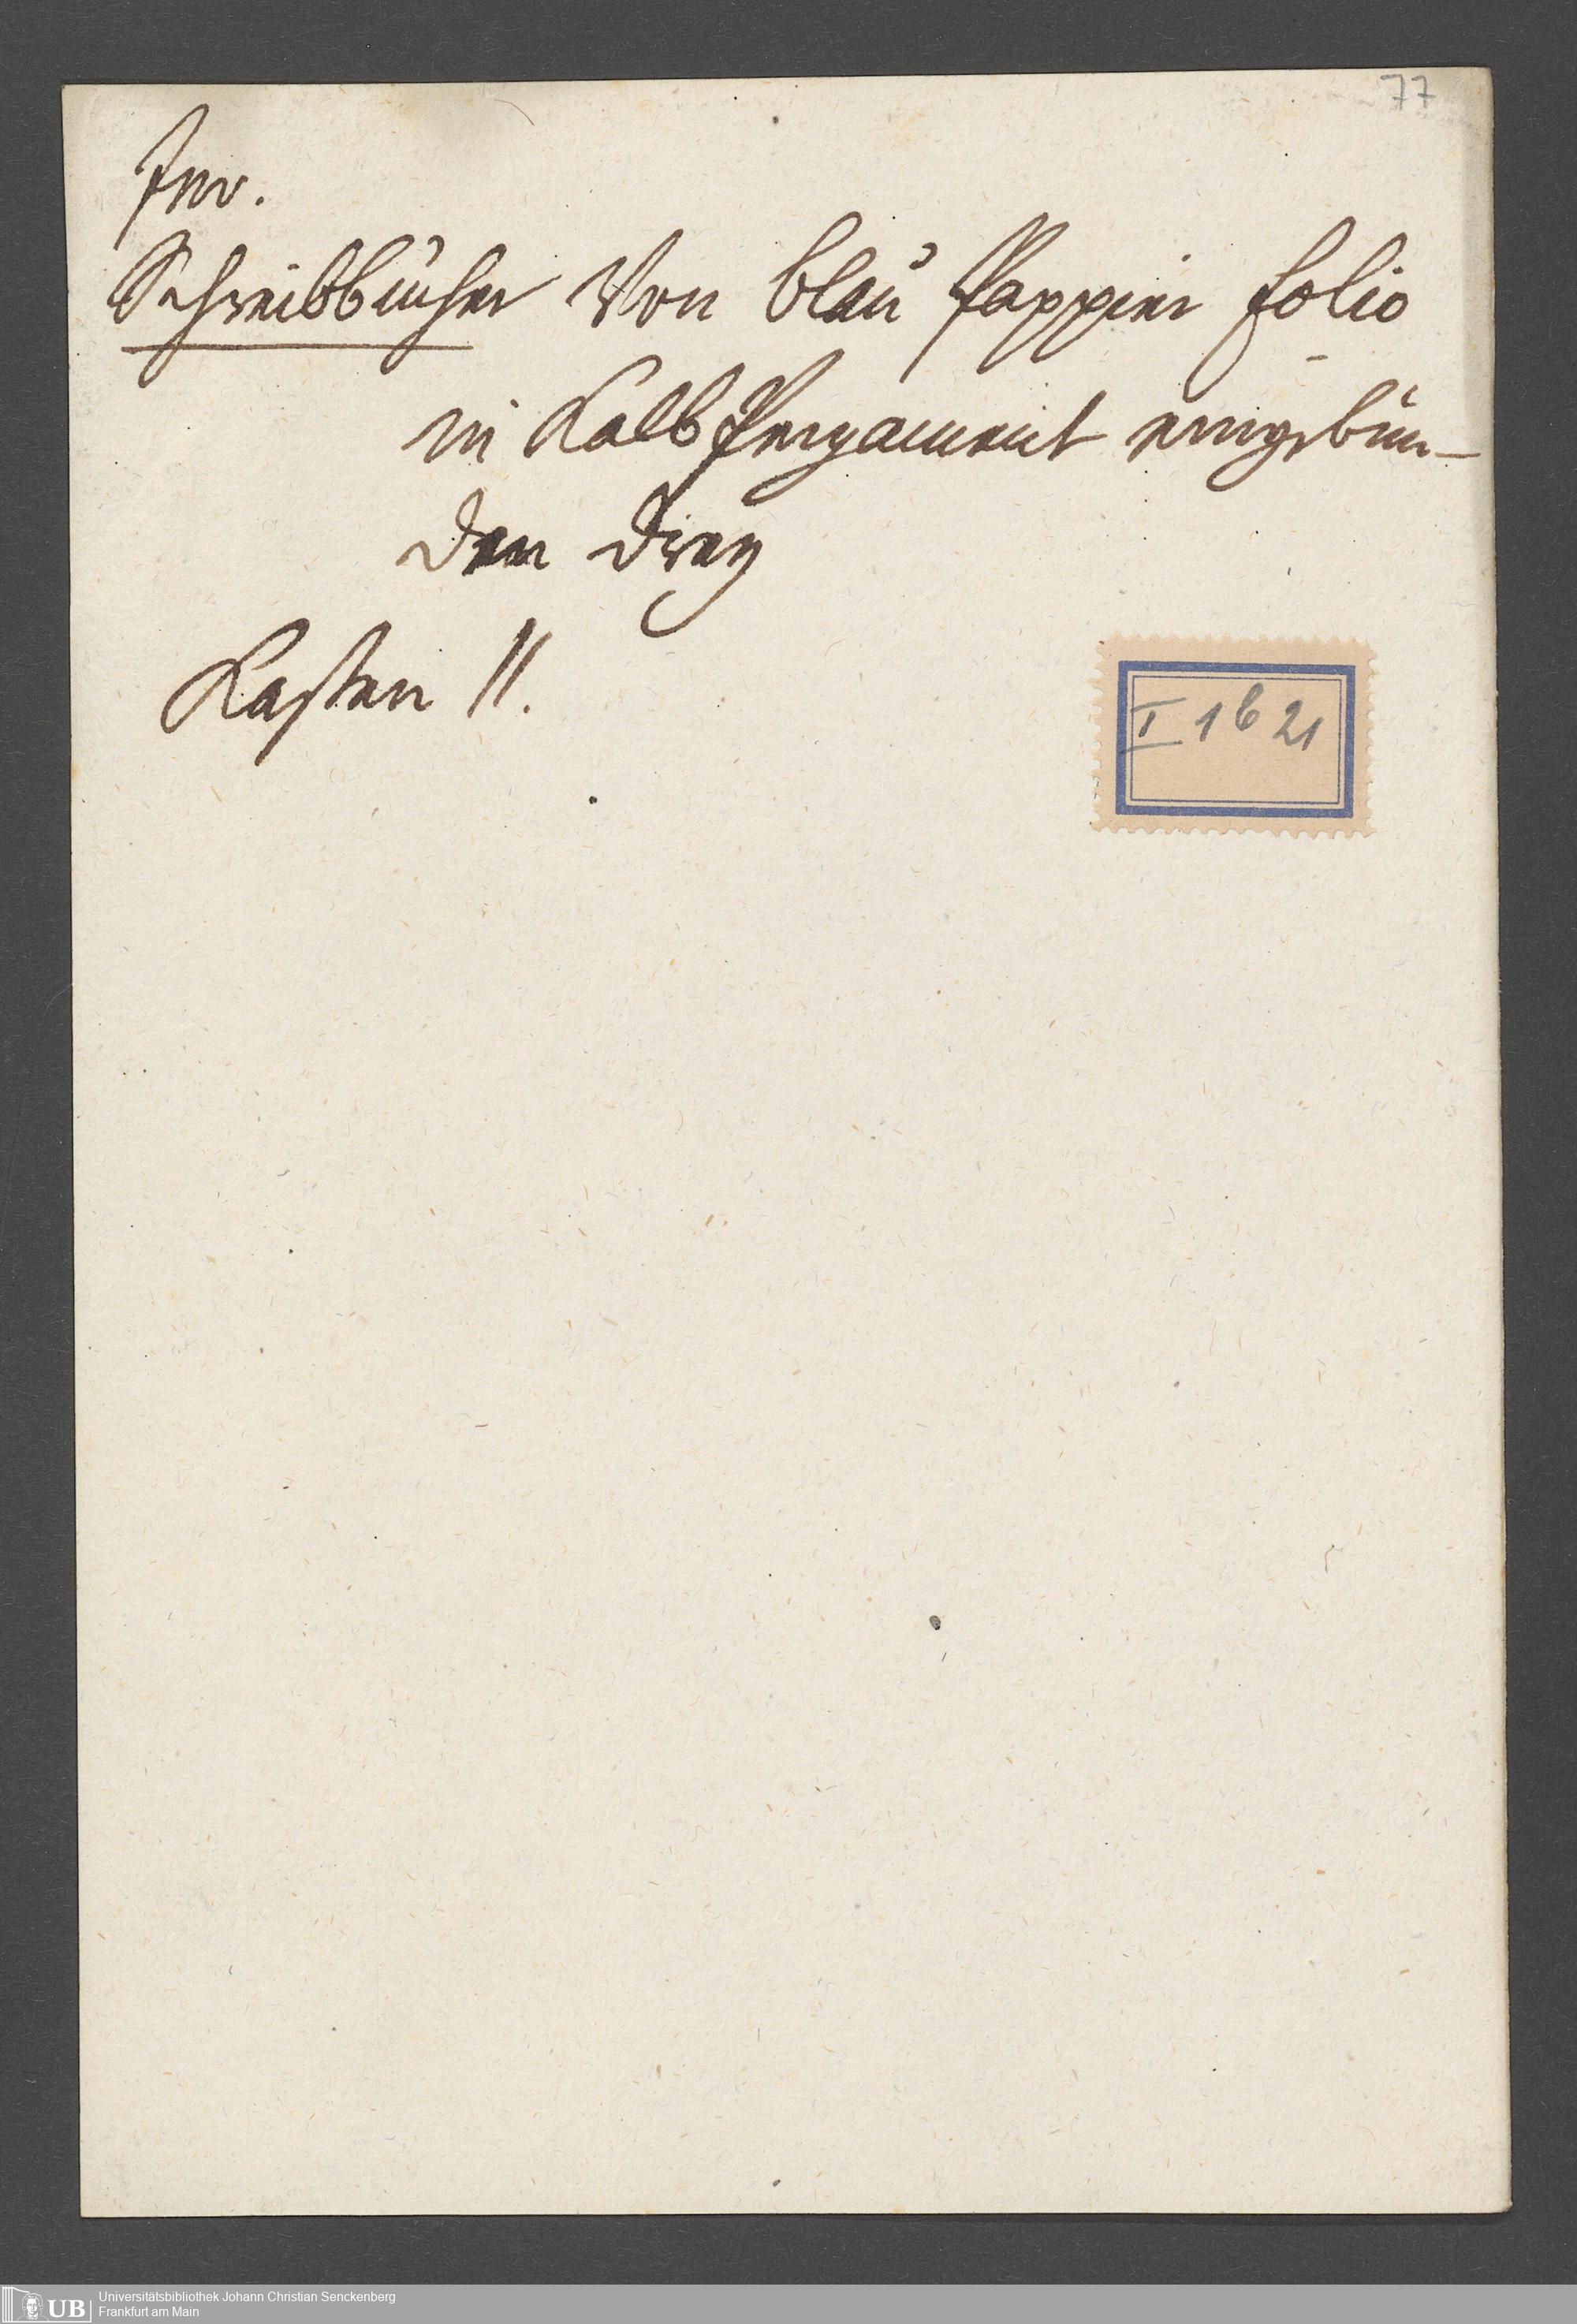 77
Inv.
Schreibbücher Von blau Pappier folio
in Kalb Pergament eingebun-
den drey
Kasten 11.
I 1 b 21
UB Universitätsbibliothek Johann Christian Senckenberg
Frankfurt am Main